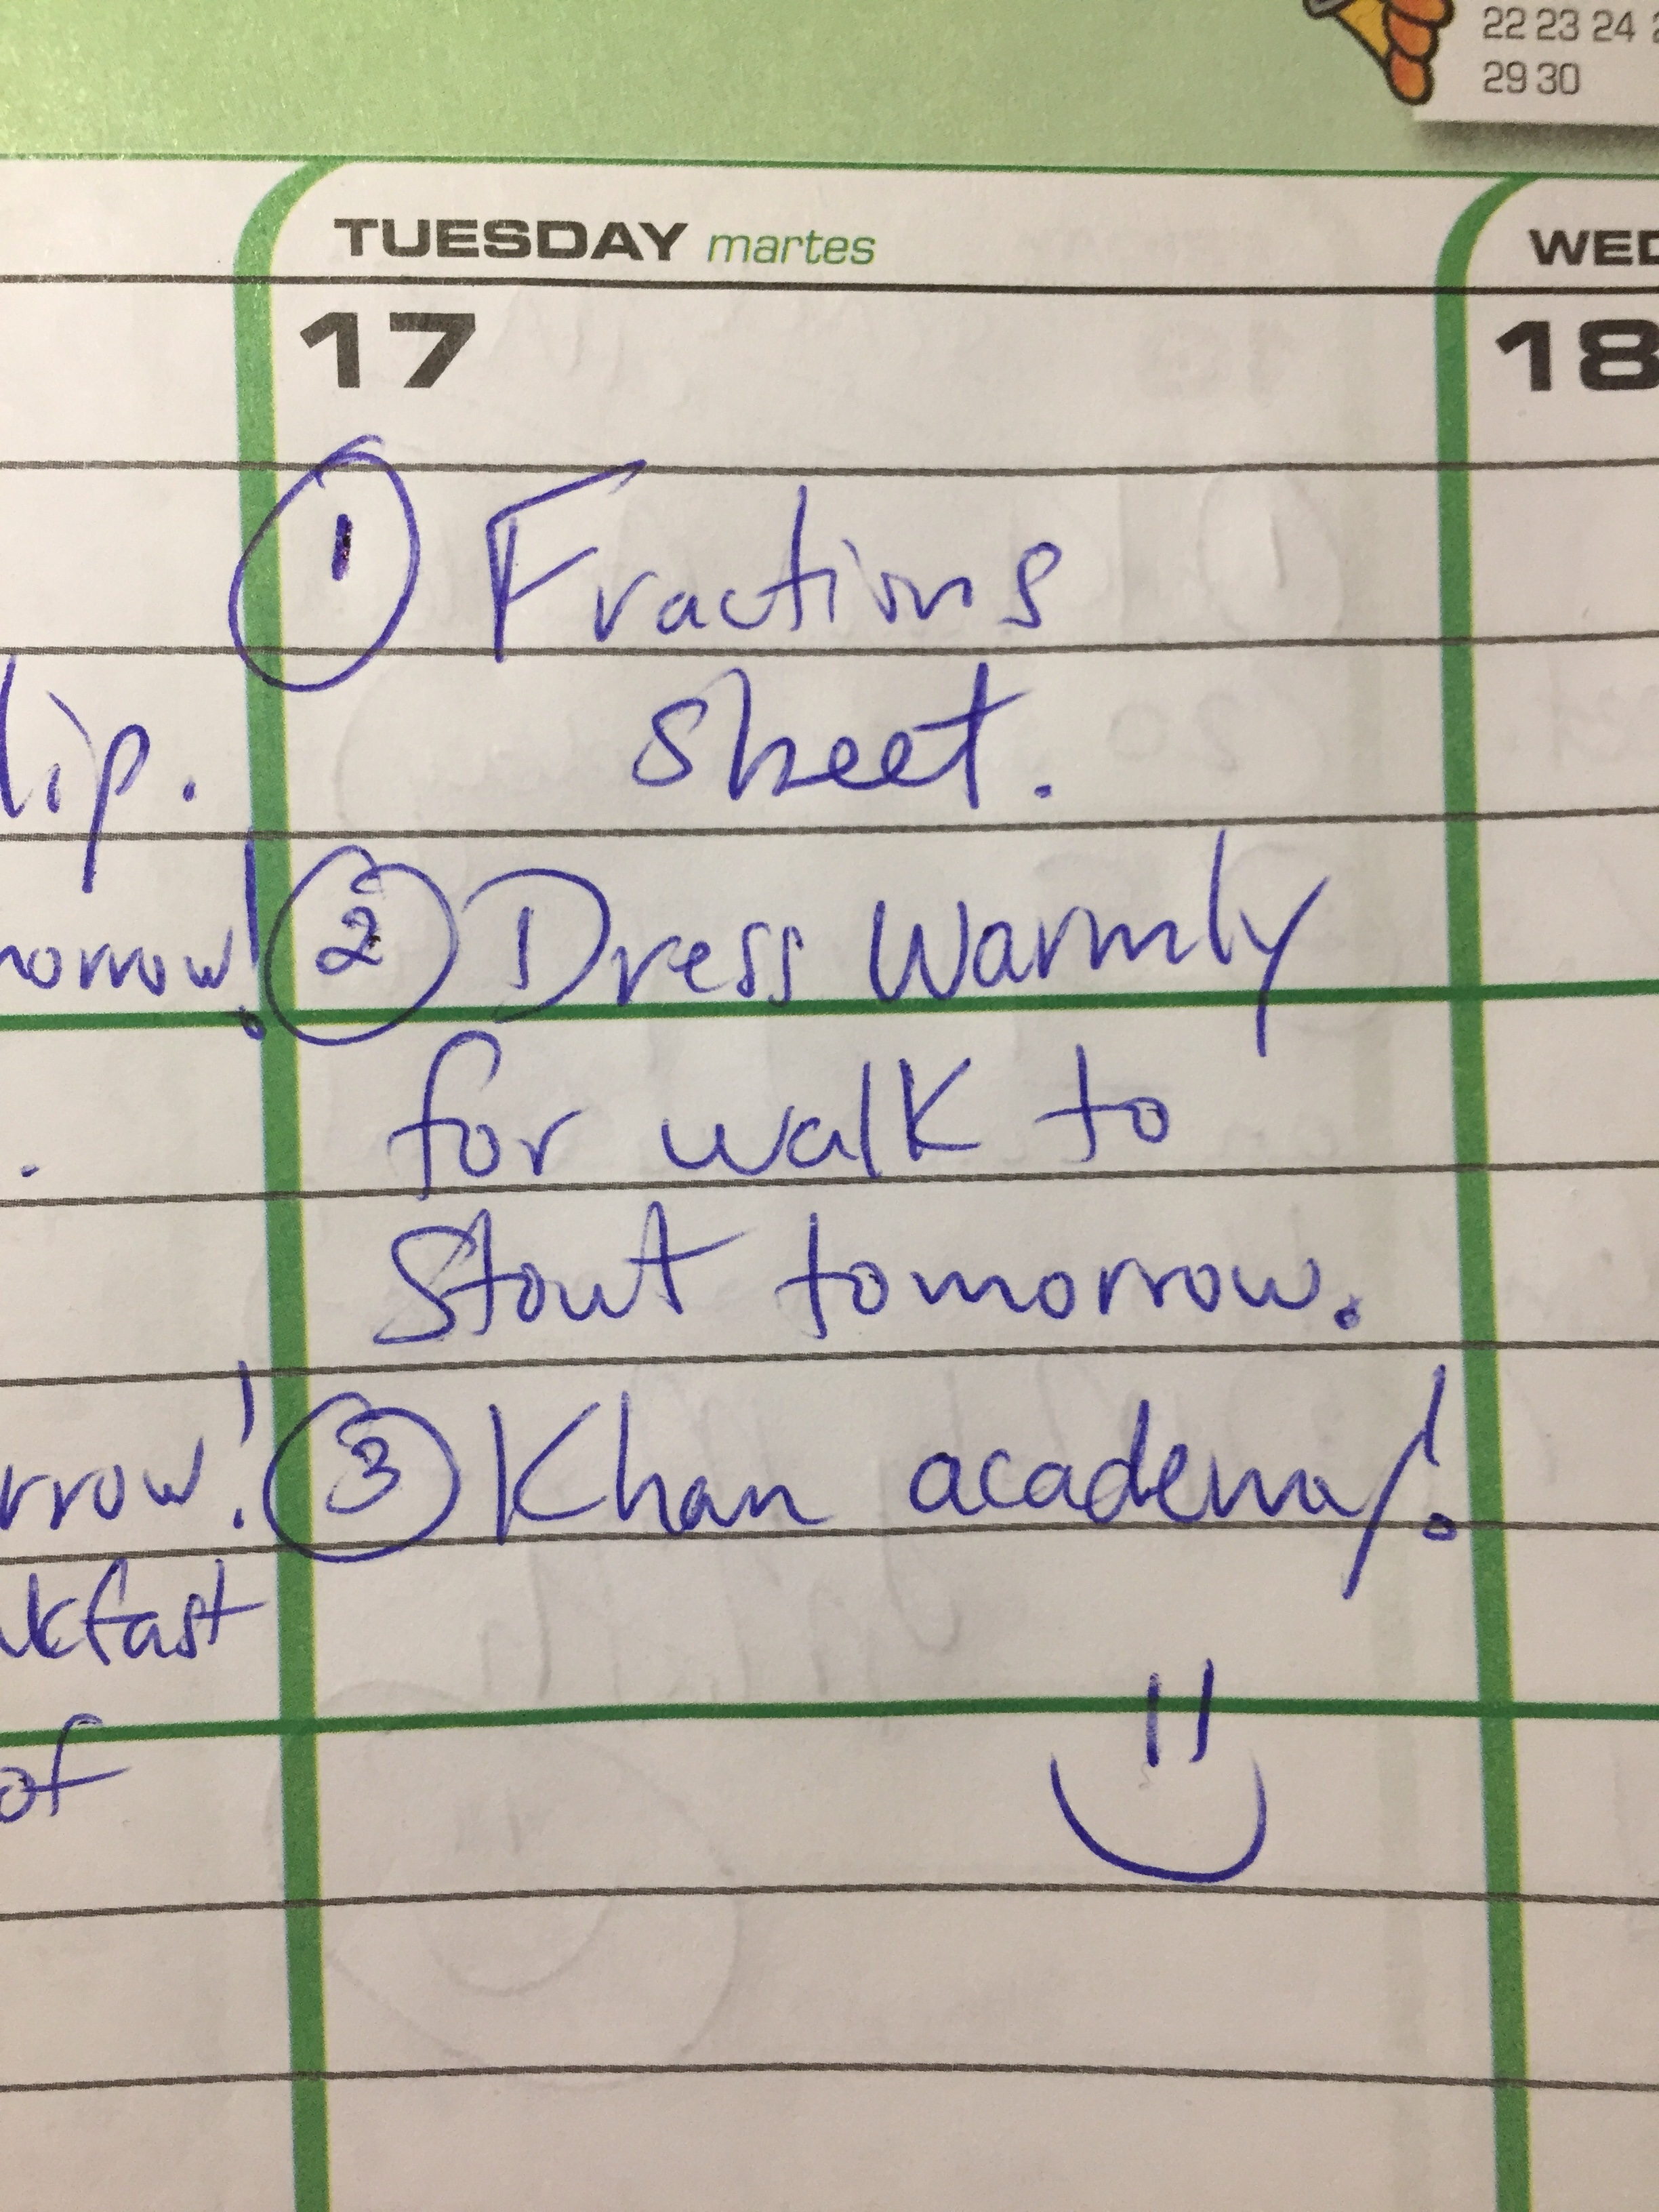 22 23 24
29 30
TUESDAY martes
WED
17
18
① Fractions
sheet.
lip.
② Dress Warmly
morrow!
for walk to
.
Stout tomorrow.
③ Khan academy!
rrow!
akfast
of